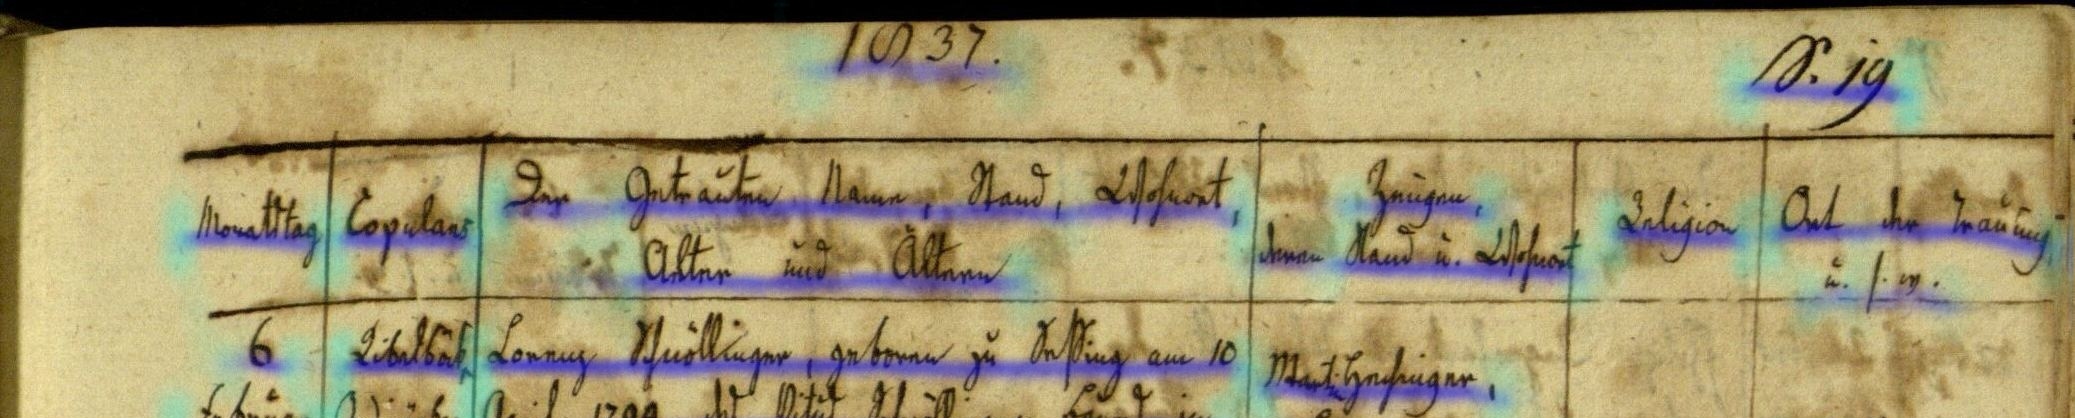 1837.
S. 19
Monatstag
Copulans
Der Getrauten Name, Stand, Wohnort,
Alter und Ältern
Zeugen,
deren Stand u. Wohnort
Religion
Ort der Trauung
u. s. w.
6
Lorenz Schnöllinger, geboren zu am 10
Mart.
1799 des